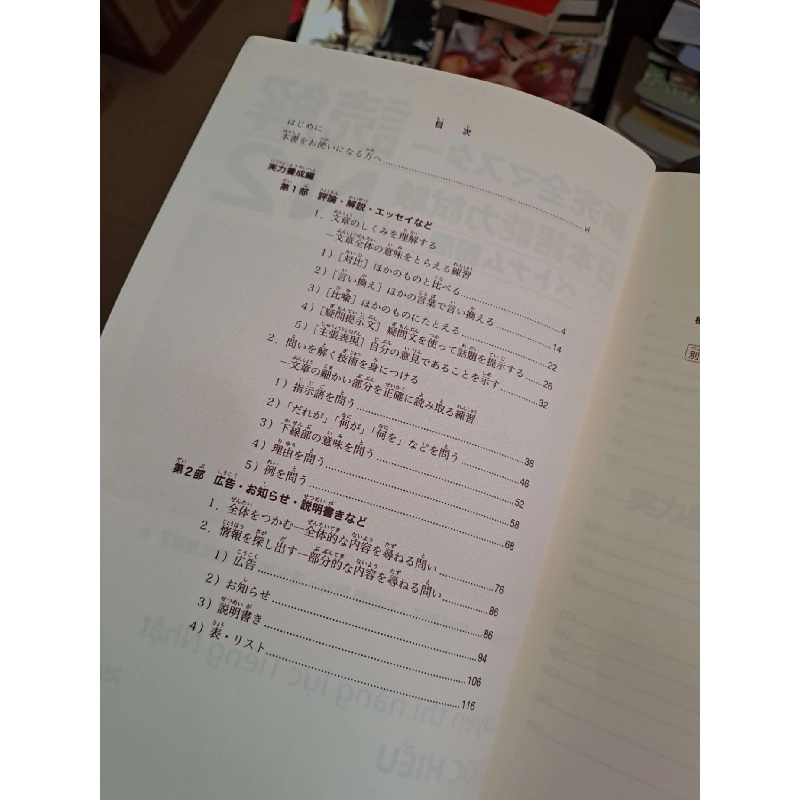 目次
はじめに
本書をお使いになる方へ……vi
実力養成編
第1部 評論・解説・エッセイなど
1. 文章のしくみを理解する
－文章全体の意味をとらえる練習
1）[対比] ほかのものと比べる……4
2）[言い換え] ほかの言葉で言い換える……14
3）[比喩] ほかのものにたとえる……22
4）[疑問提示文] 疑問文を使って話題を提示する……26
5）[主張表現] 自分の意見であることを示す……32
2. 問いを解く技術を身につける
－文章の細かい部分を正確に読み取る練習
1）指示語を問う……38
2）「だれが」「何が」「何を」などを問う……46
3）下線部の意味を問う……52
4）理由を問う……58
5）例を問う……68
第2部 広告・お知らせ・説明書きなど
1. 全体をつかむ－全体的な内容を尋ねる問い……76
2. 情報を探し出す－部分的な内容を尋ねる問い……86
1）広告……86
2）お知らせ……94
3）説明書き……106
4）表・リスト……116
別